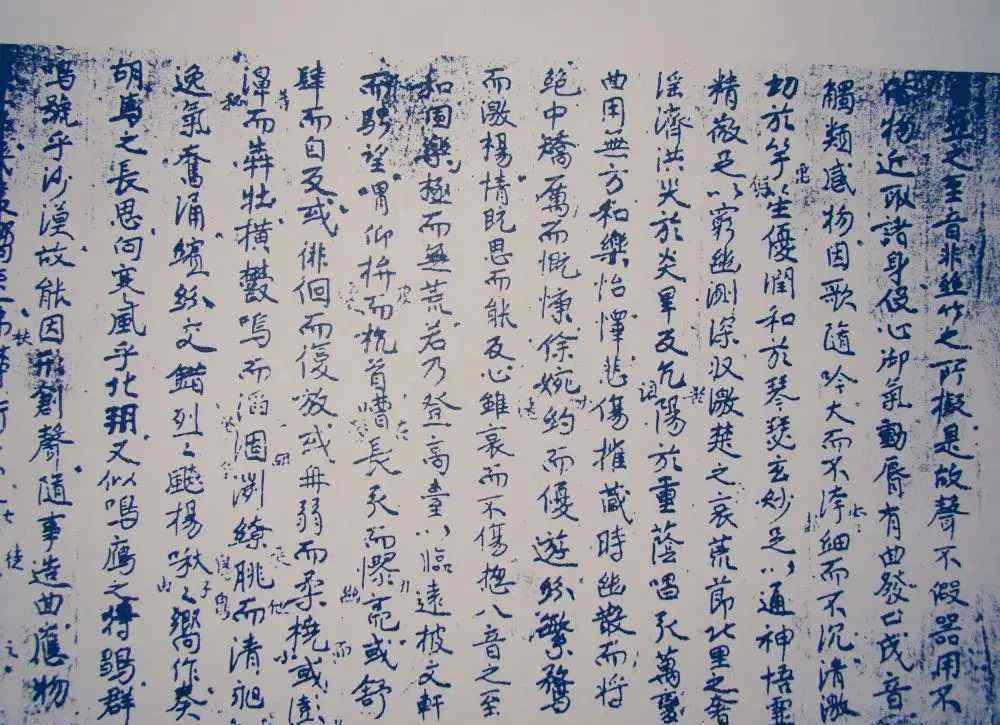 之至音非丝竹之所擬是故聲不假器用不
物近取諸身役心御氣動脣有曲發口成音
觸類感物因歌隨吟大而不洿細而不沉清激
切於竽笙優潤和於琴瑟玄妙足以通神悟靈
精微足以窮幽測深收激楚之哀荒節北里之奢
淫濟洪災於炎旱反亢陽於重蔭唱引萬變
曲用無方和樂怡懌悲傷摧藏時幽散而將
絕中矯厲而慨慷徐婉約而優遊紛繁騖
而激揚情既思而能反心雖哀而不傷揔八音之至
和固樂極而無荒若乃登高臺以臨遠披文軒
而騁望喟仰抃而抗首嘈長引而憀亮或舒
肆而自反或徘徊而復放或冉弱而柔撓或澎
濞而奔壯橫鬱鳴而滔涸冽繚朓而清昶
逸氣奮涌繽紛交錯列々飈揚啾々響作奏
胡馬之長思向寒風乎北朔又似鳴鴈之將鶵群
鳴號乎沙漠故能因形創聲隨事造曲應物